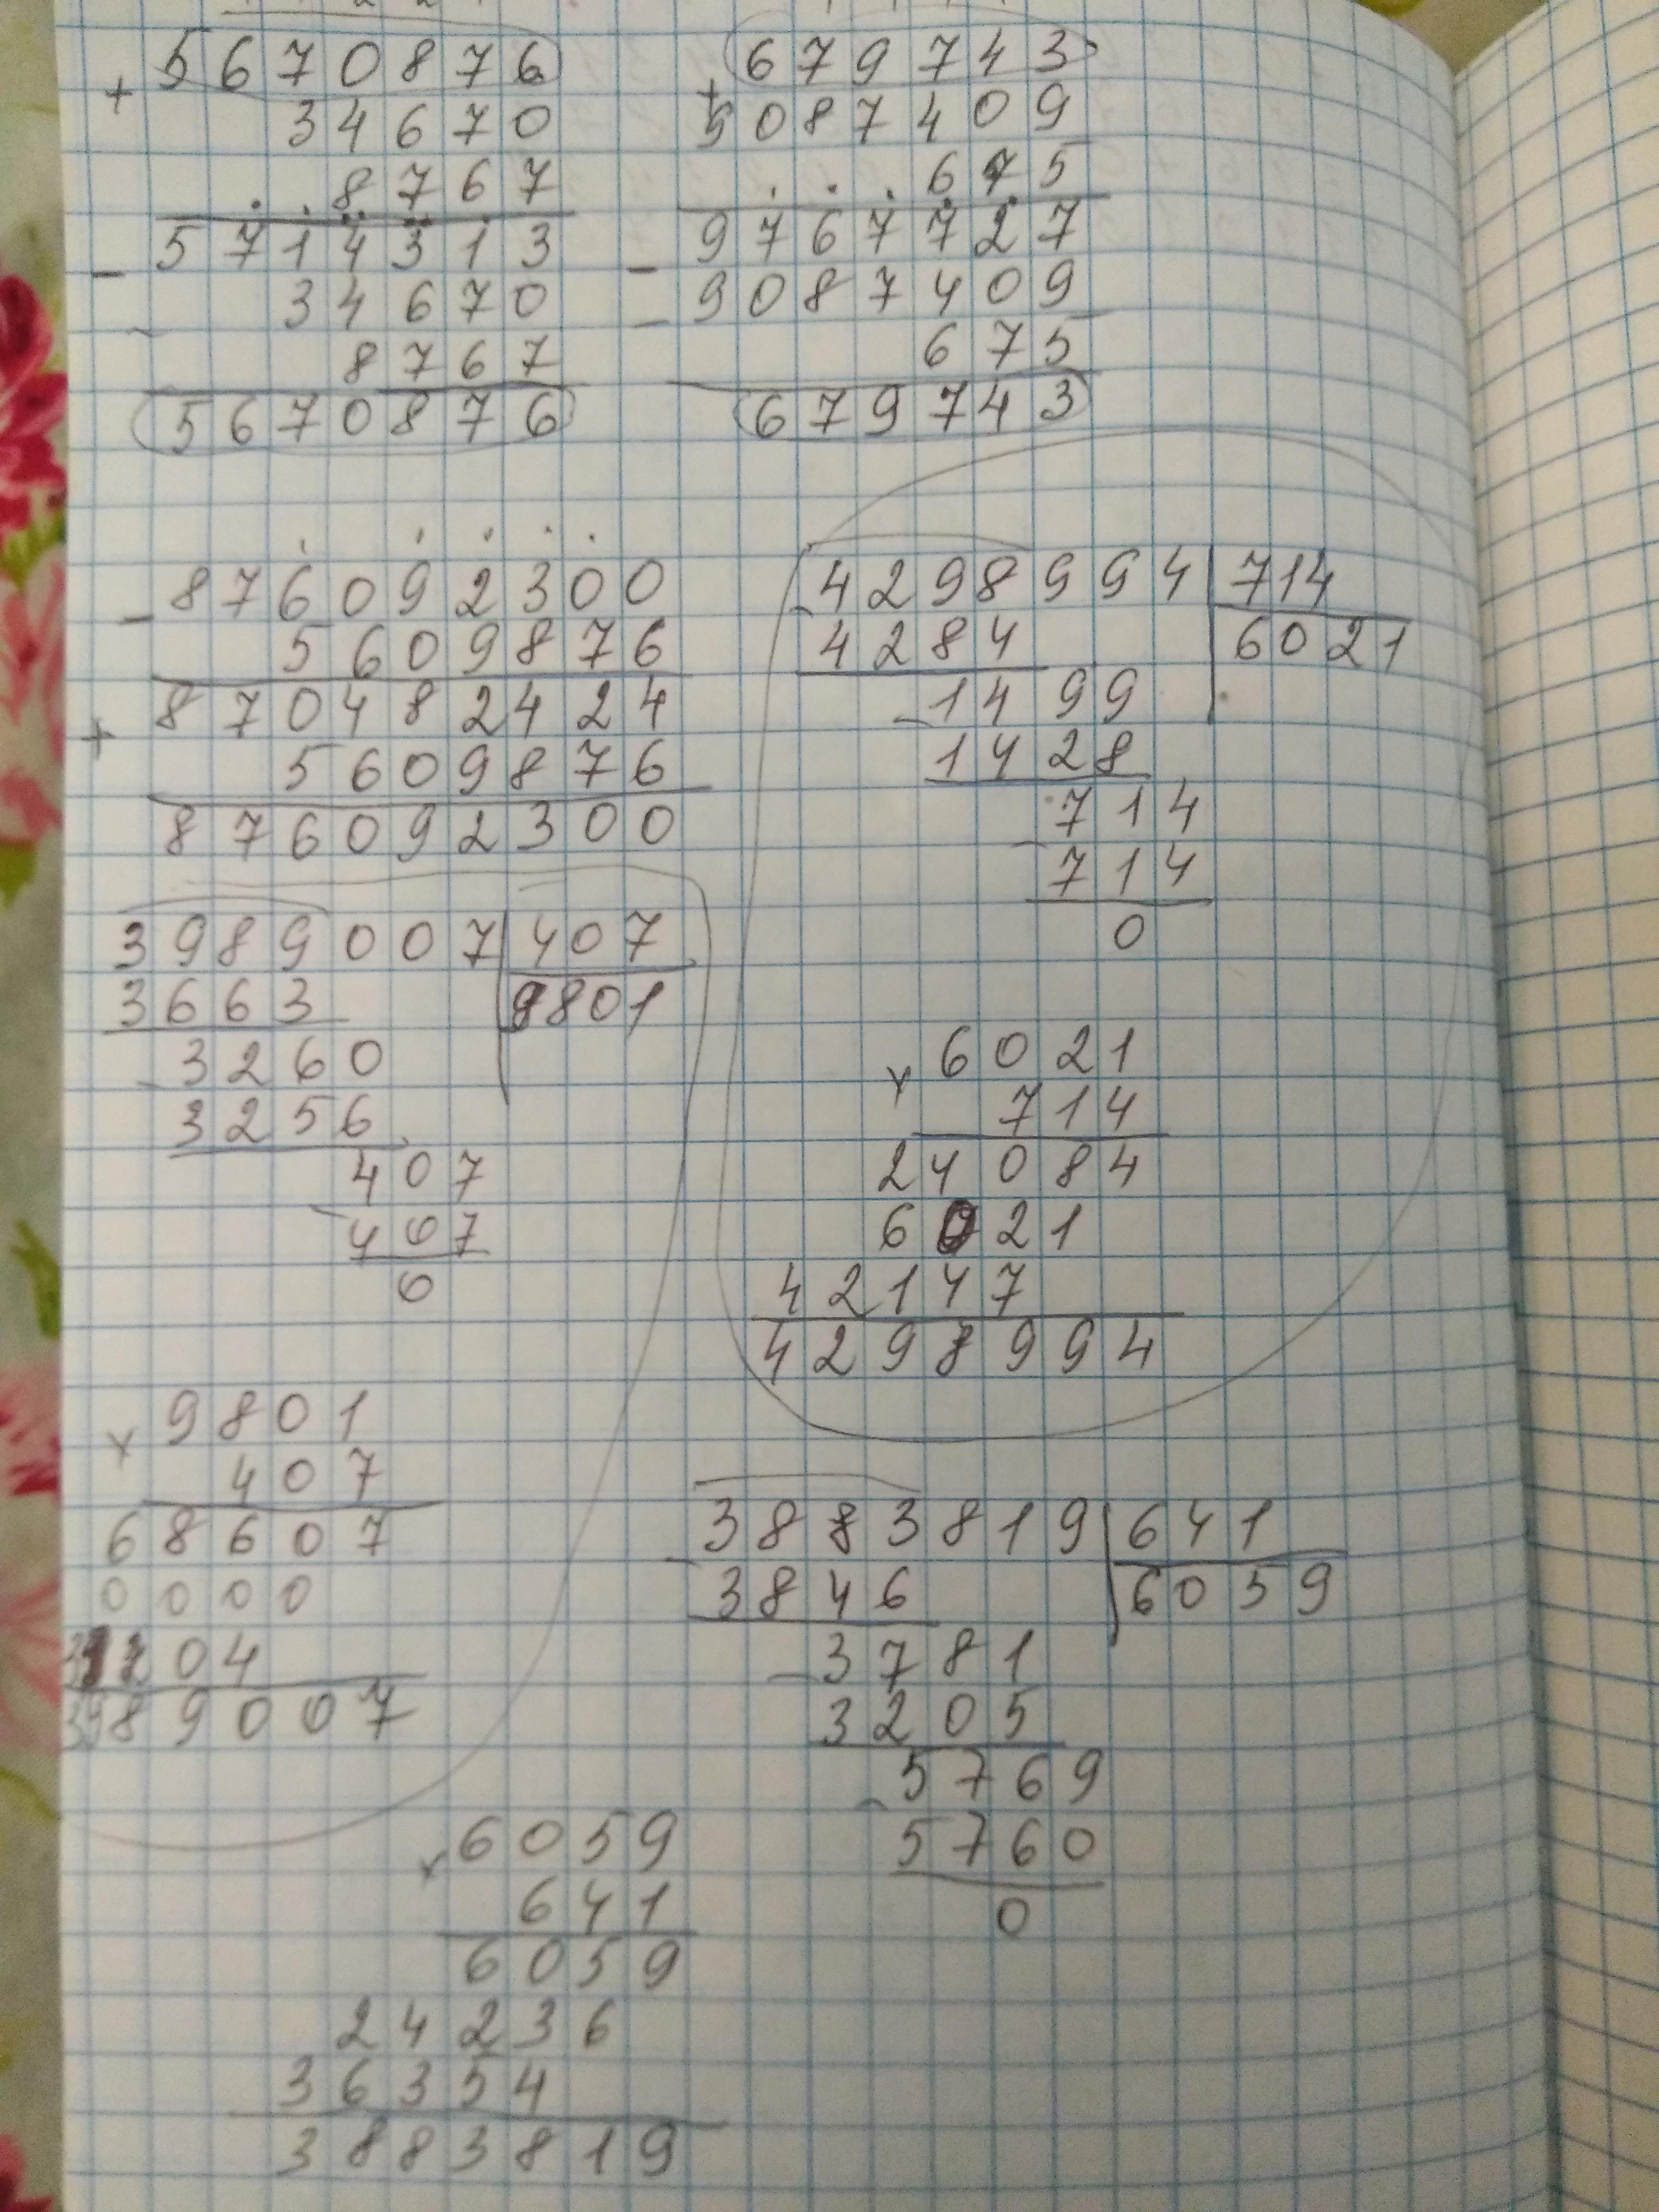 + 5670876
34670
8767
- 5714313
34670
- 8767
5670876
+ 679743
9087409
675
- 9767727
- 9087409
675
679743
- 876092300
5609876
+ 870482424
5609876
876092300
- 4298994 | 714
4284 | 6021
- 1499
1428
- 714
714
0
3989007 | 407
3663 | 9801
- 3260
3256
- 407
407
0
× 6021
714
24084
6021
42147
4298994
× 9801
407
68607
0000
39204
3989007
- 3883819 | 641
3846 | 6059
- 3781
3205
- 5769
5760
0
× 6059
641
6059
24236
36354
3883819